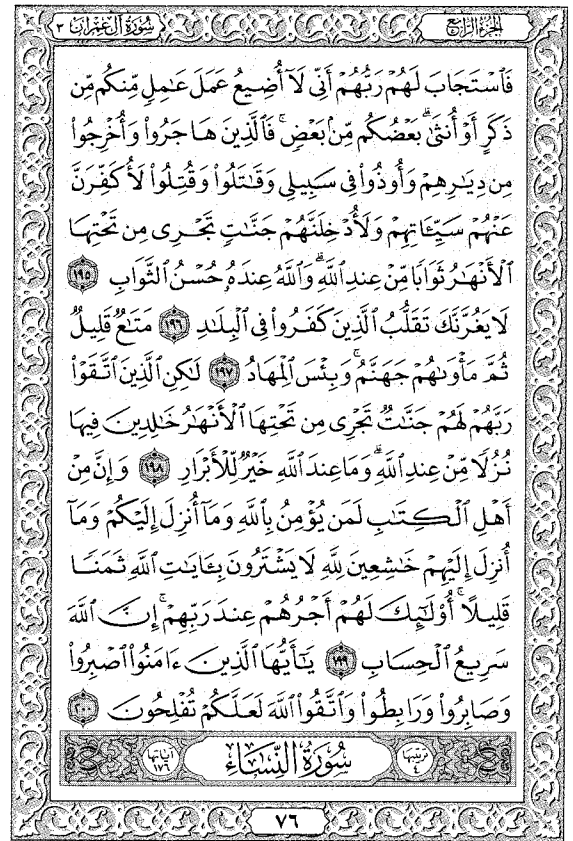 سُورَةُ آلِ عِمْرَانَ ٣
الجُزْءُ الرَّابِعُ
فَٱسْتَجَابَ لَهُمْ رَبُّهُمْ أَنِّى لَآ أُضِيعُ عَمَلَ عَٰمِلٍ مِّنكُم مِّن
ذَكَرٍ أَوْ أُنثَىٰ ۖ بَعْضُكُم مِّنۢ بَعْضٍ ۖ فَٱلَّذِينَ هَاجَرُوا۟ وَأُخْرِجُوا۟
مِن دِيَٰرِهِمْ وَأُوذُوا۟ فِى سَبِيلِى وَقَٰتَلُوا۟ وَقُتِلُوا۟ لَأُكَفِّرَنَّ
عَنْهُمْ سَيِّـَٔاتِهِمْ وَلَأُدْخِلَنَّهُمْ جَنَّٰتٍ تَجْرِى مِن تَحْتِهَا
ٱلْأَنْهَٰرُ ثَوَابًا مِّنْ عِندِ ٱللَّهِ ۗ وَٱللَّهُ عِندَهُۥ حُسْنُ ٱلثَّوَابِ ١٩٥
لَا يَغُرَّنَّكَ تَقَلُّبُ ٱلَّذِينَ كَفَرُوا۟ فِى ٱلْبِلَٰدِ ١٩٦ مَتَٰعٌ قَلِيلٌ
ثُمَّ مَأْوَىٰهُمْ جَهَنَّمُ ۚ وَبِئْسَ ٱلْمِهَادُ ١٩٧ لَٰكِنِ ٱلَّذِينَ ٱتَّقَوْا۟
رَبَّهُمْ لَهُمْ جَنَّٰتٌ تَجْرِى مِن تَحْتِهَا ٱلْأَنْهَٰرُ خَٰلِدِينَ فِيهَا
نُزُلًا مِّنْ عِندِ ٱللَّهِ ۗ وَمَا عِندَ ٱللَّهِ خَيْرٌ لِّلْأَبْرَارِ ١٩٨ وَإِنَّ مِنْ
أَهْلِ ٱلْكِتَٰبِ لَمَن يُؤْمِنُ بِٱللَّهِ وَمَآ أُنزِلَ إِلَيْكُمْ وَمَآ
أُنزِلَ إِلَيْهِمْ خَٰشِعِينَ لِلَّهِ لَا يَشْتَرُونَ بِـَٔايَٰتِ ٱللَّهِ ثَمَنًا
قَلِيلًا ۗ أُو۟لَٰٓئِكَ لَهُمْ أَجْرُهُمْ عِندَ رَبِّهِمْ ۗ إِنَّ ٱللَّهَ
سَرِيعُ ٱلْحِسَابِ ١٩٩ يَٰٓأَيُّهَا ٱلَّذِينَ ءَامَنُوا۟ ٱصْبِرُوا۟
وَصَابِرُوا۟ وَرَابِطُوا۟ وَٱتَّقُوا۟ ٱللَّهَ لَعَلَّكُمْ تُفْلِحُونَ ٢٠٠
ترتيبها ٤ سُورَةُ النِّسَاءِ آياتها ١٧٦
٧٦